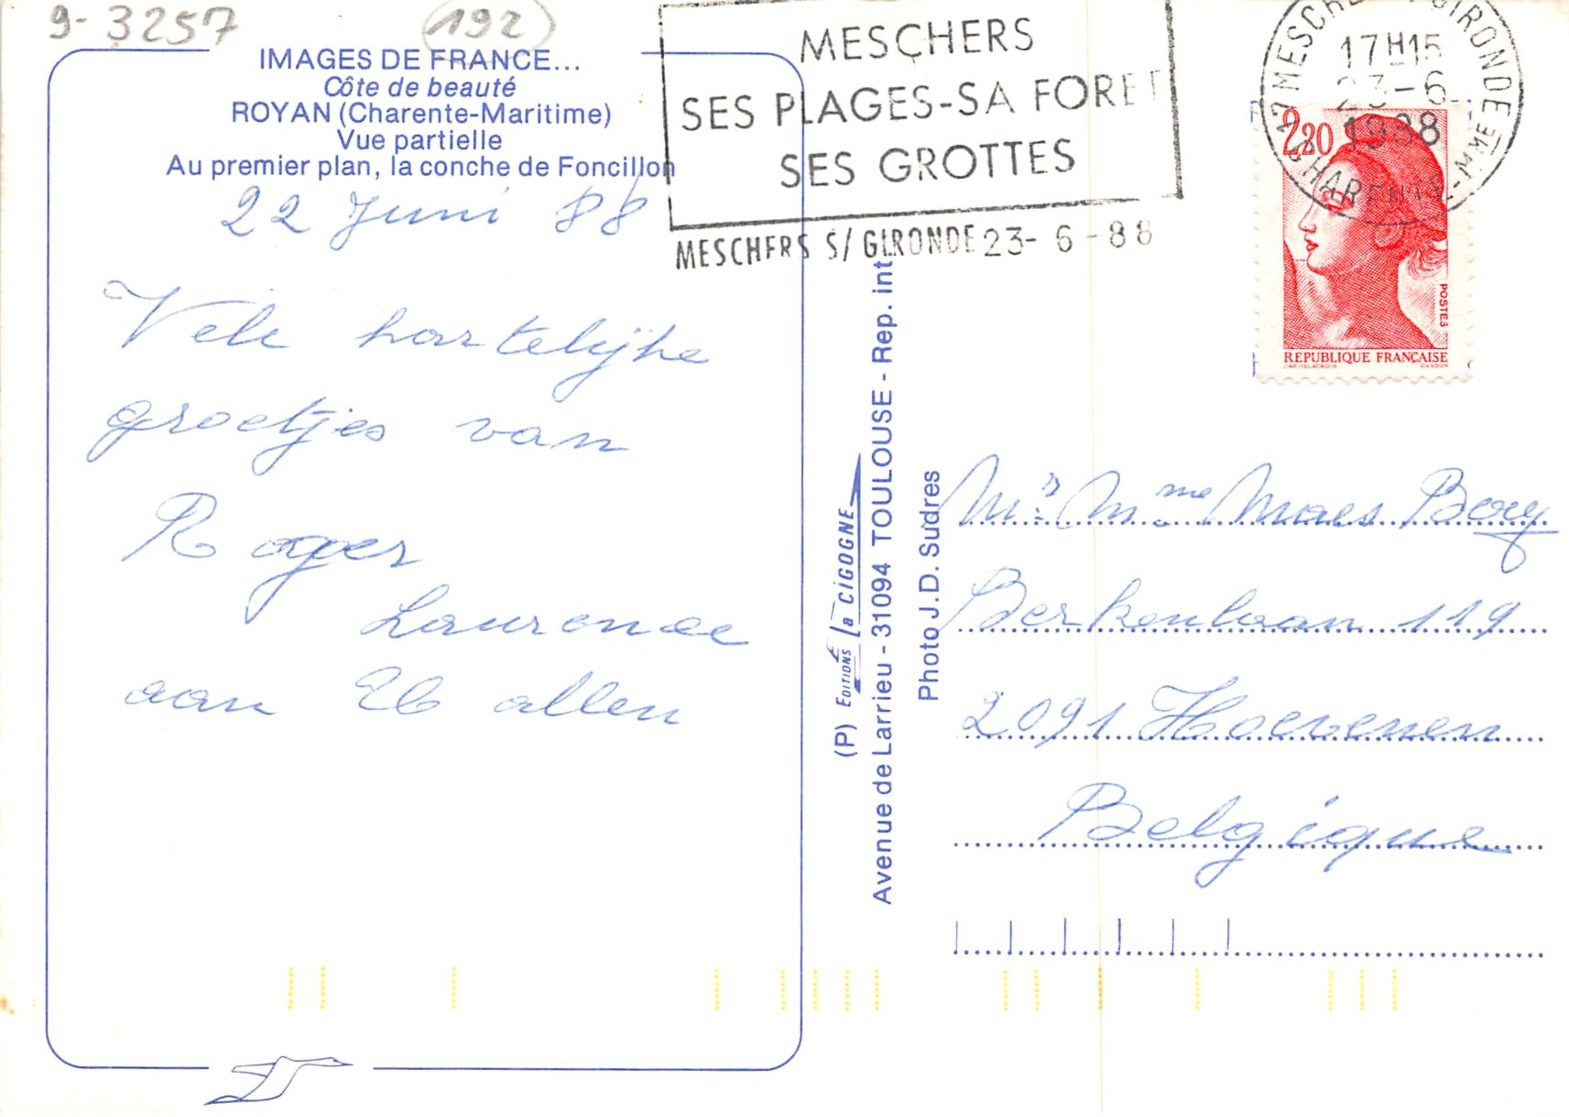 9-3257 192
IMAGES DE FRANCE...
Côte de beauté
ROYAN (Charente-Maritime)
Vue partielle
Au premier plan, la conche de Foncillon
22 Juni 88
Vele hartelijke
groetjes van
Roger
Laurence
aan allen
MESCHERS
SES PLAGES-SA FORET
SES GROTTES
MESCHERS S/ GIRONDE 23-6-88
17 MESCHERS GIRONDE
17H15
23-6
1988
CHARENTE-MME
2,20
POSTES
REPUBLIQUE FRANÇAISE
(P) EDITIONS La CIGOGNE
Avenue de Larrieu - 31094 TOULOUSE - Rep. int.
Photo J.D. Sudres
Mr. Mme Maes
Berkenlaan 119
2091 Hoevenen
Belgique